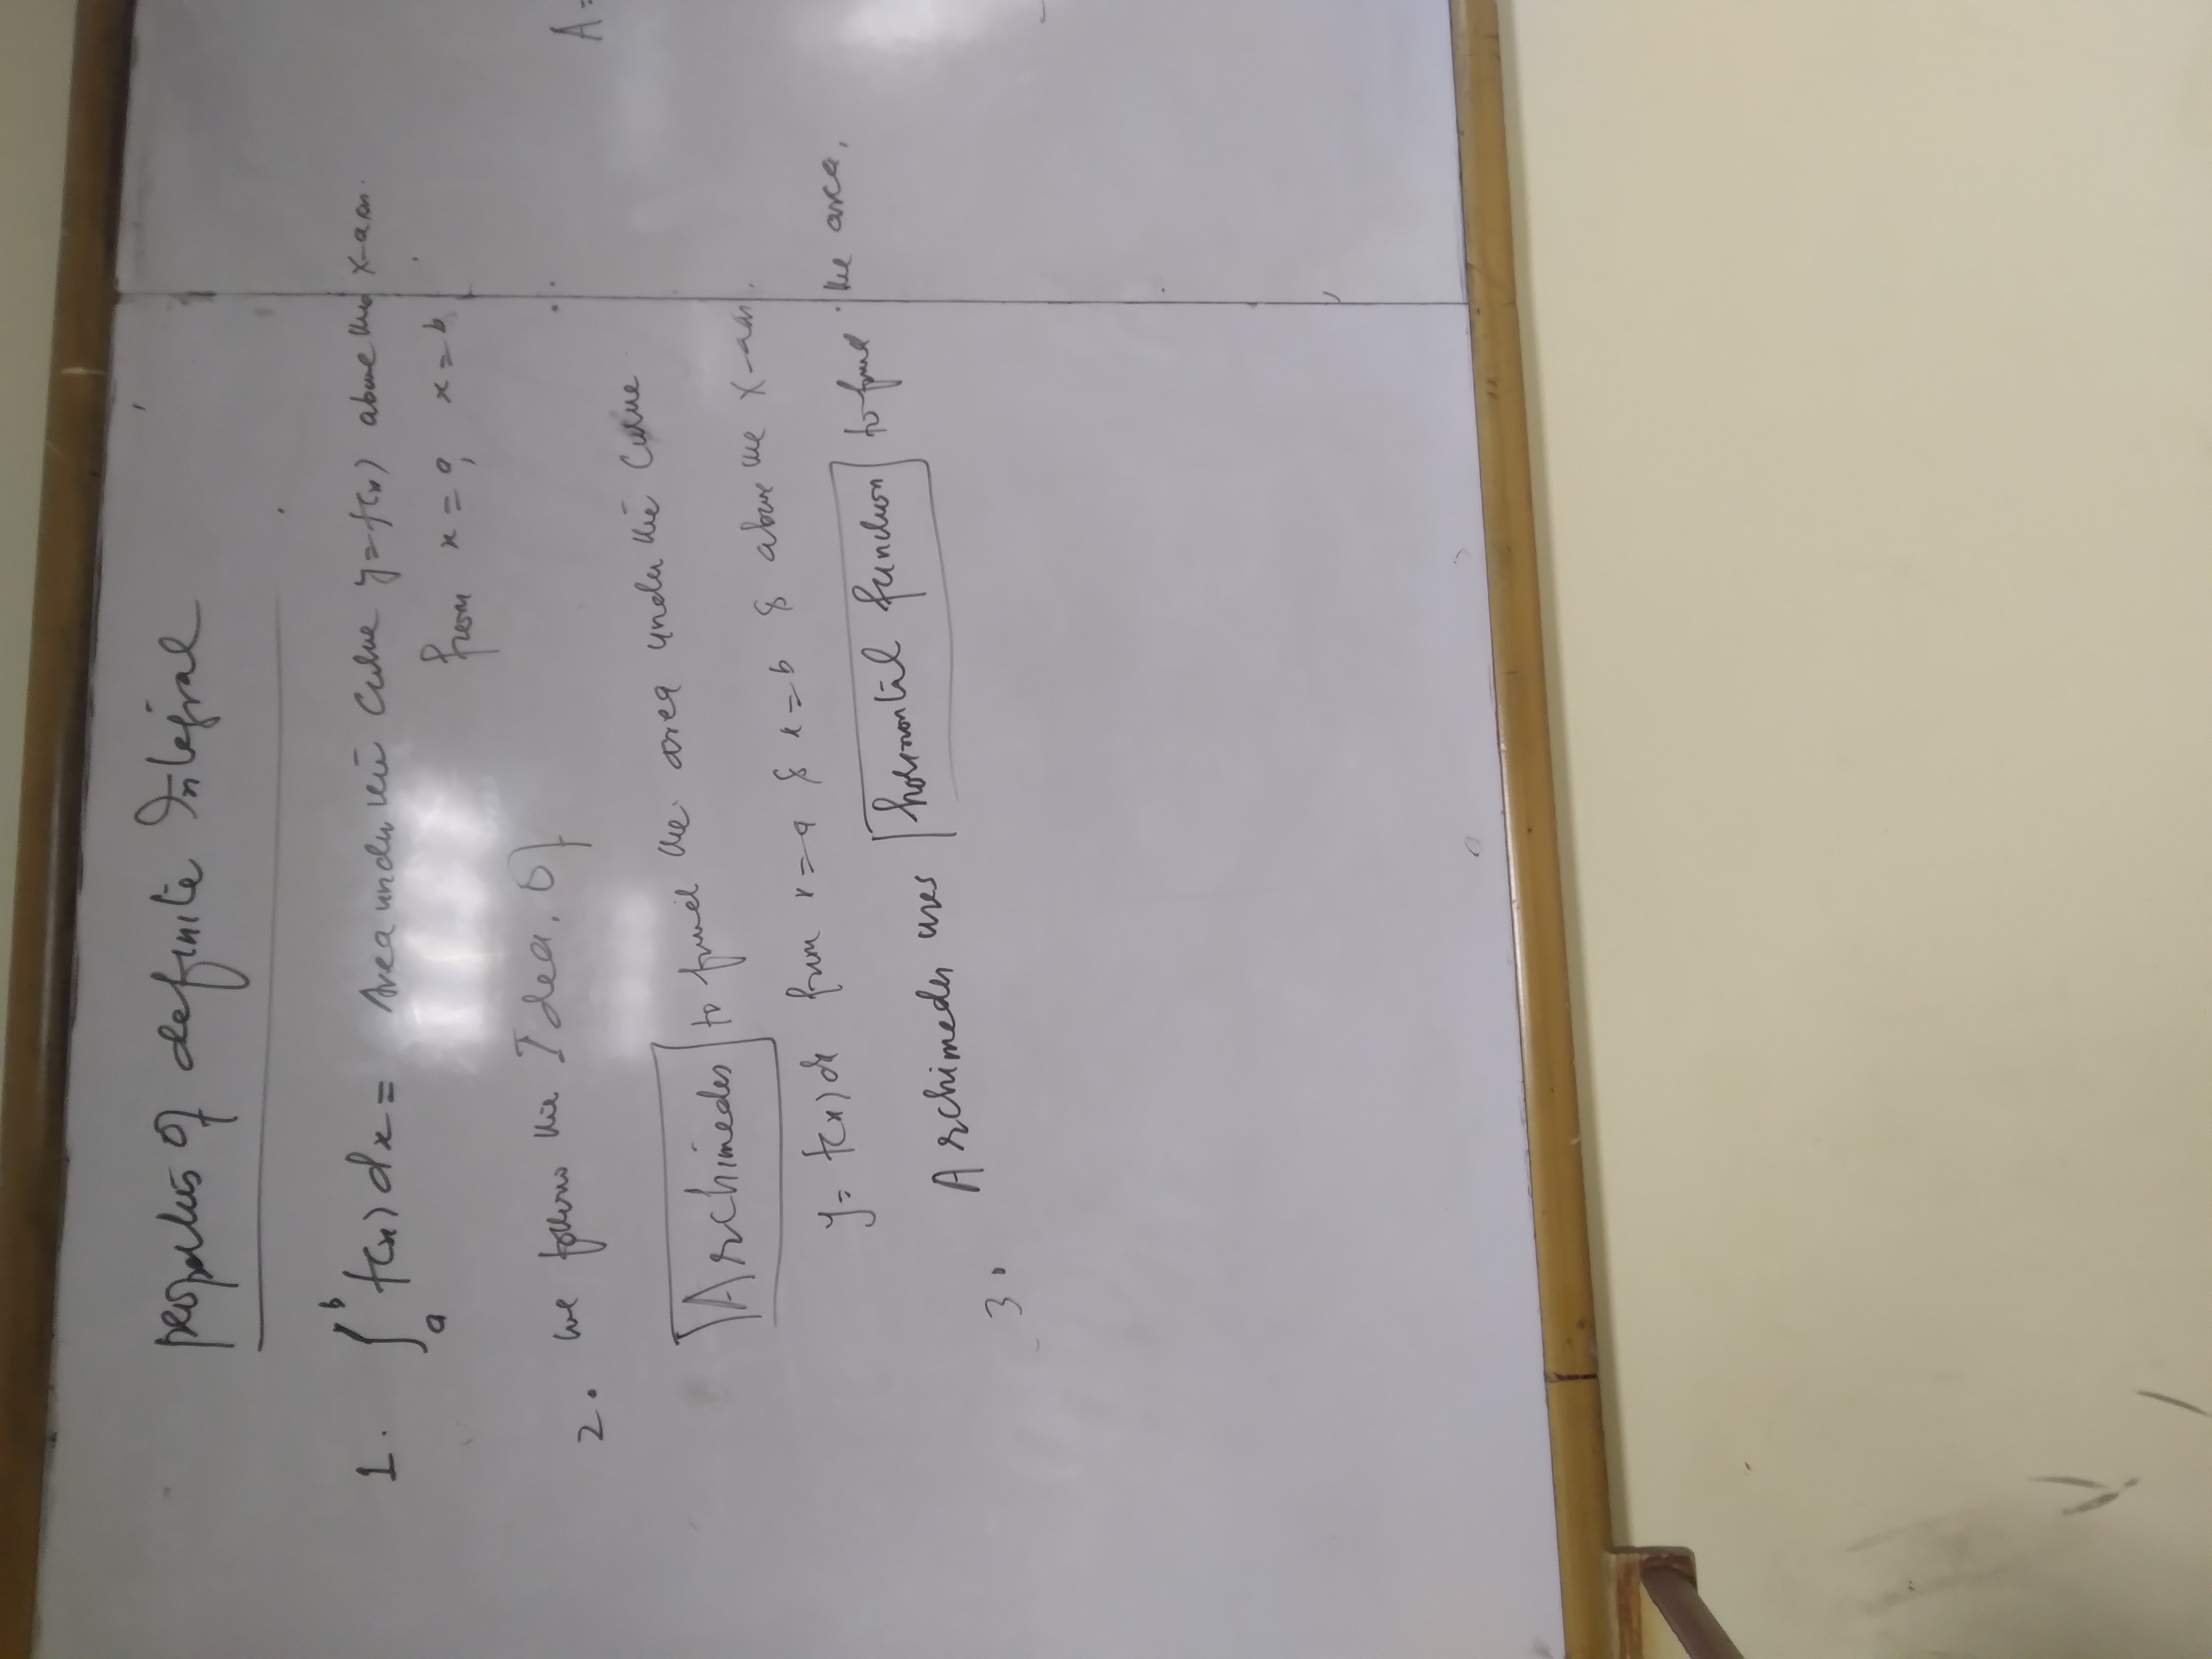 properties of definite Integral
1. ∫_a^b f(x) dx = Area under the Curve y = f(x) above the x-axis.
from x = a, x = b
2. we follow the Idea of
Archimedes to find the area under the Curve
y = f(x) dx from x = a & x = b & above the X-axis.
3. Archimedes uses horizontal function to find the area.
A =